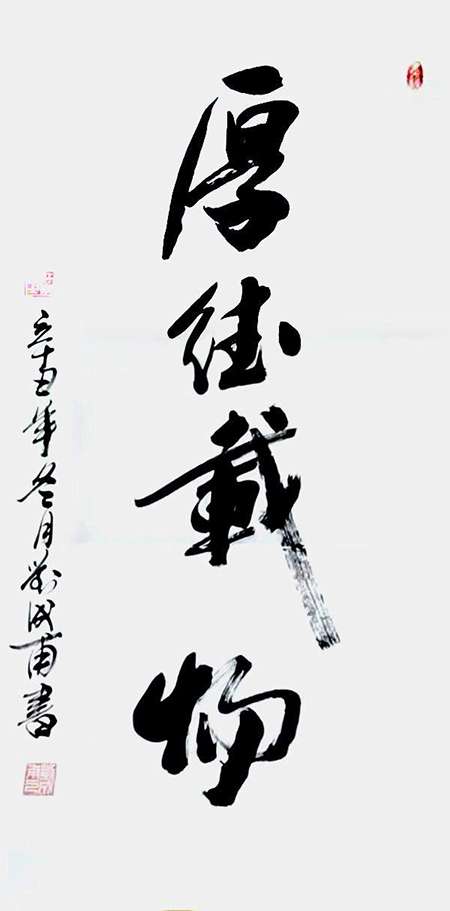 厚德載物
辛丑年冬月劉成甫書